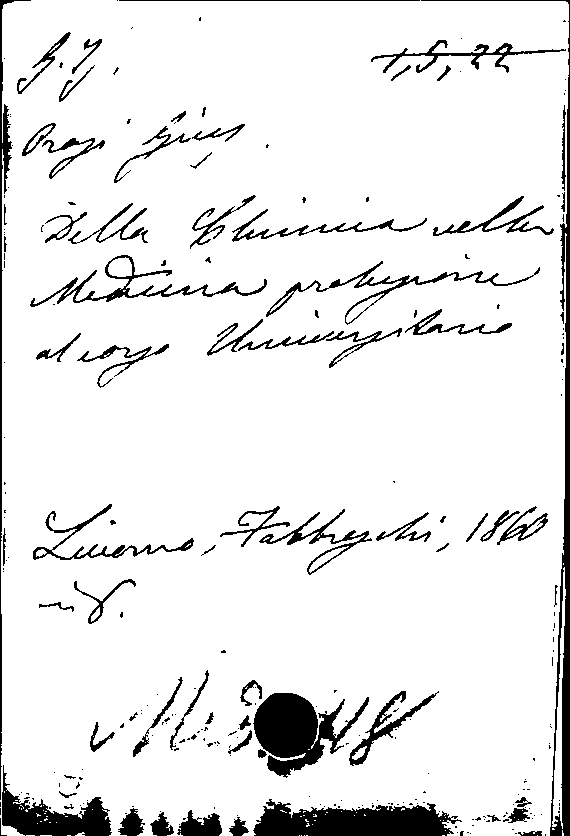 G. J.
1, 5, 22
Orosi Gius.
Della Chimica nella
Medicina prolusione
al corso Universitario
Livorno, Fabbreschi, 1860
in 8.